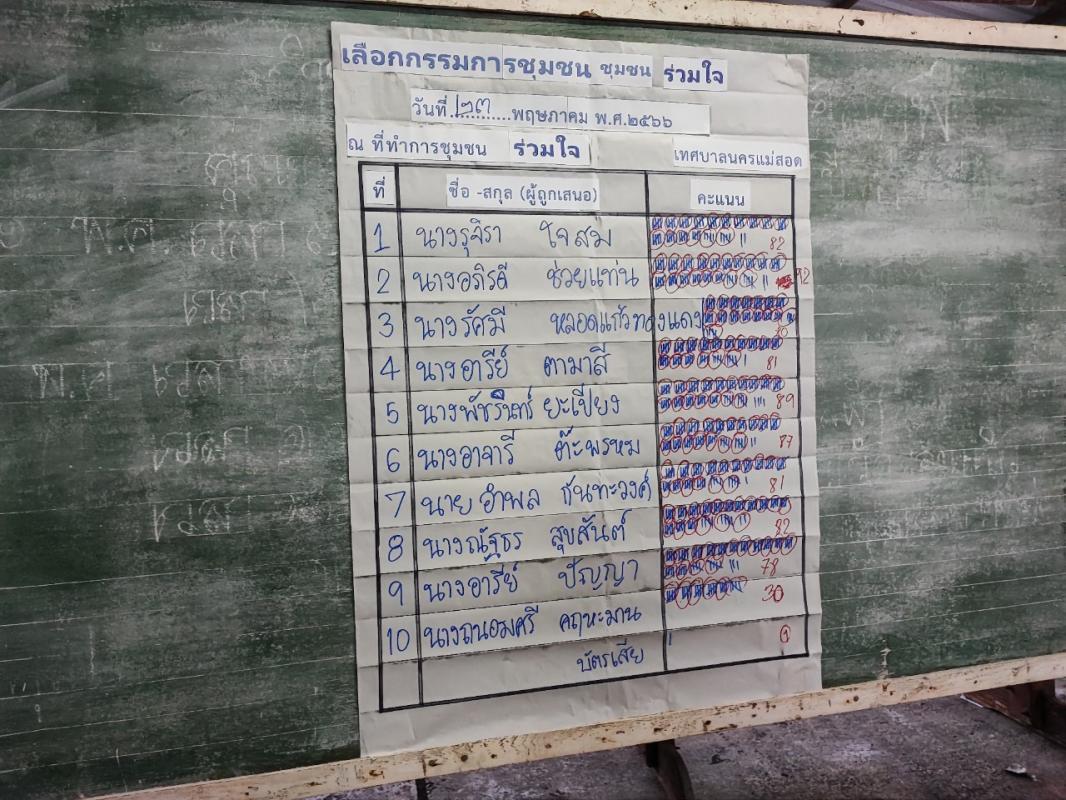 เลือกกรรมการชุมชน ชุมชน ร่วมใจ
วันที่ ๒๓ พฤษภาคม พ.ศ.๒๕๖๖
ณ ที่ทำการชุมชน ร่วมใจ เทศบาลนครแม่สอด
ที่ ชื่อ -สกุล (ผู้ถูกเสนอ) คะแนน
1 นางรุจิรา ใจสม 82
2 นางอภิรดี ช่วยแท่น 92
3 นางรัศมี หลอดแก้วทองแดง
4 นางอารีย์ ตามาสี 81
5 นางพัชรินทร์ ยะเปียง 89
6 นางอาจารี ต๊ะพรหม 87
7 นาย อำพล กันทะวงค์ 81
8 นางณัฐธร สุขสันต์ 82
9 นางอารีย์ ปัญญา 78
10 นางถนอมศรี คฤหะมาน 30
บัตรเสีย 1